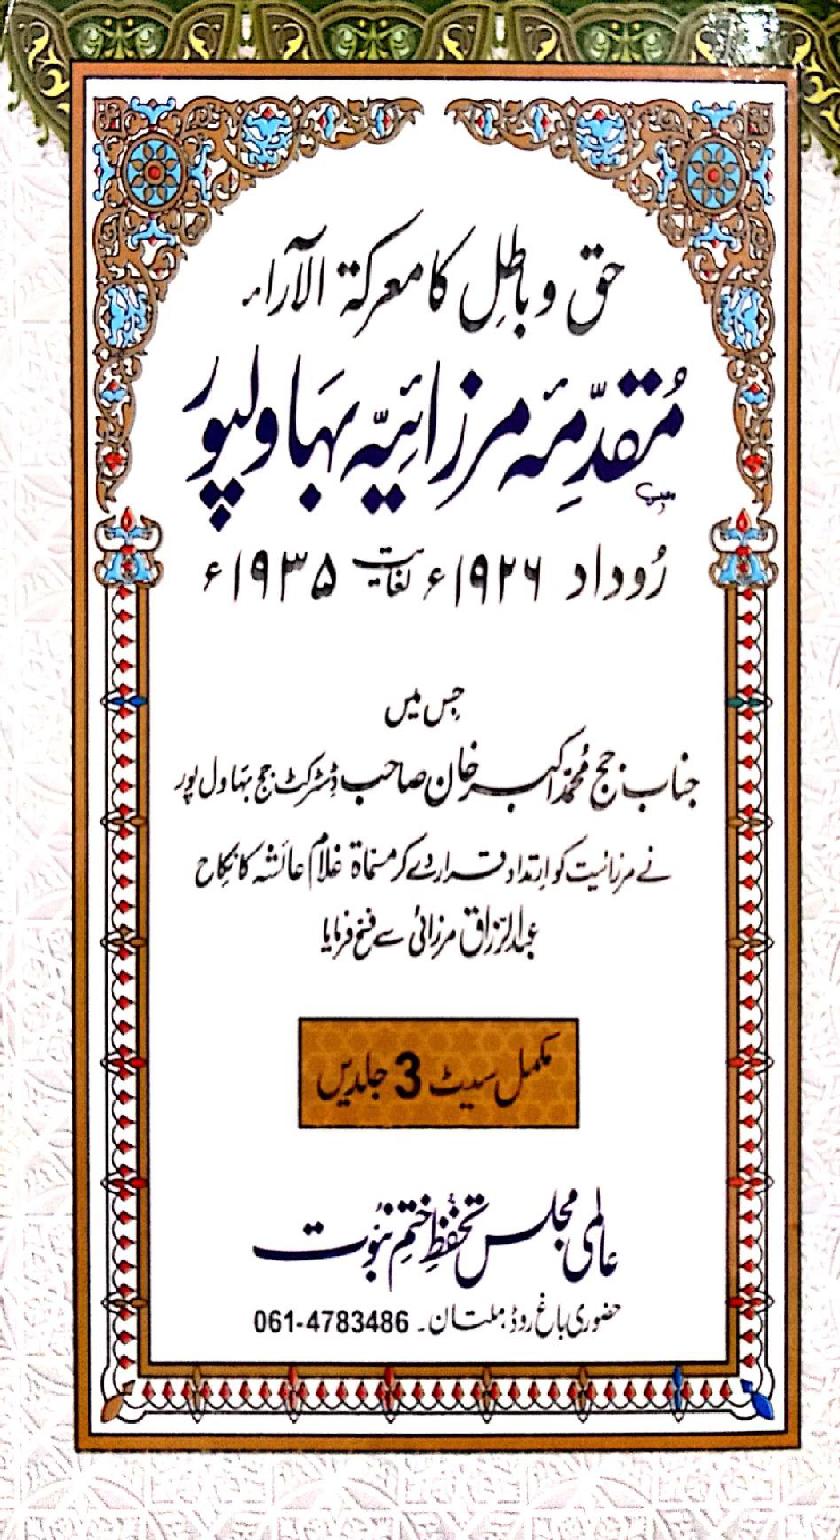 حق و باطل کا معرکۃ الآراء
مُقدّمِئہ مرزائیہّ بہاولپور
رُوداد ۱۹۲۶ء لغایت ۱۹۳۵ء
جِس میں
جناب جج مُحمّد اکبر خان صاحب ڈسٹرکٹ جج بہاول پور
نے مرزائیت کو اِرتداد قرار دے کر مسمّاۃ غلام عائشہ کا نکاح
عبدالرزاق مرزائی سے فسخ فرمایا
مکمل سیٹ 3 جلدیں
عالمی مجلس تحفّظِ ختمِ نبوّت
حضوری باغ روڈ، ملتان۔ 061-4783486